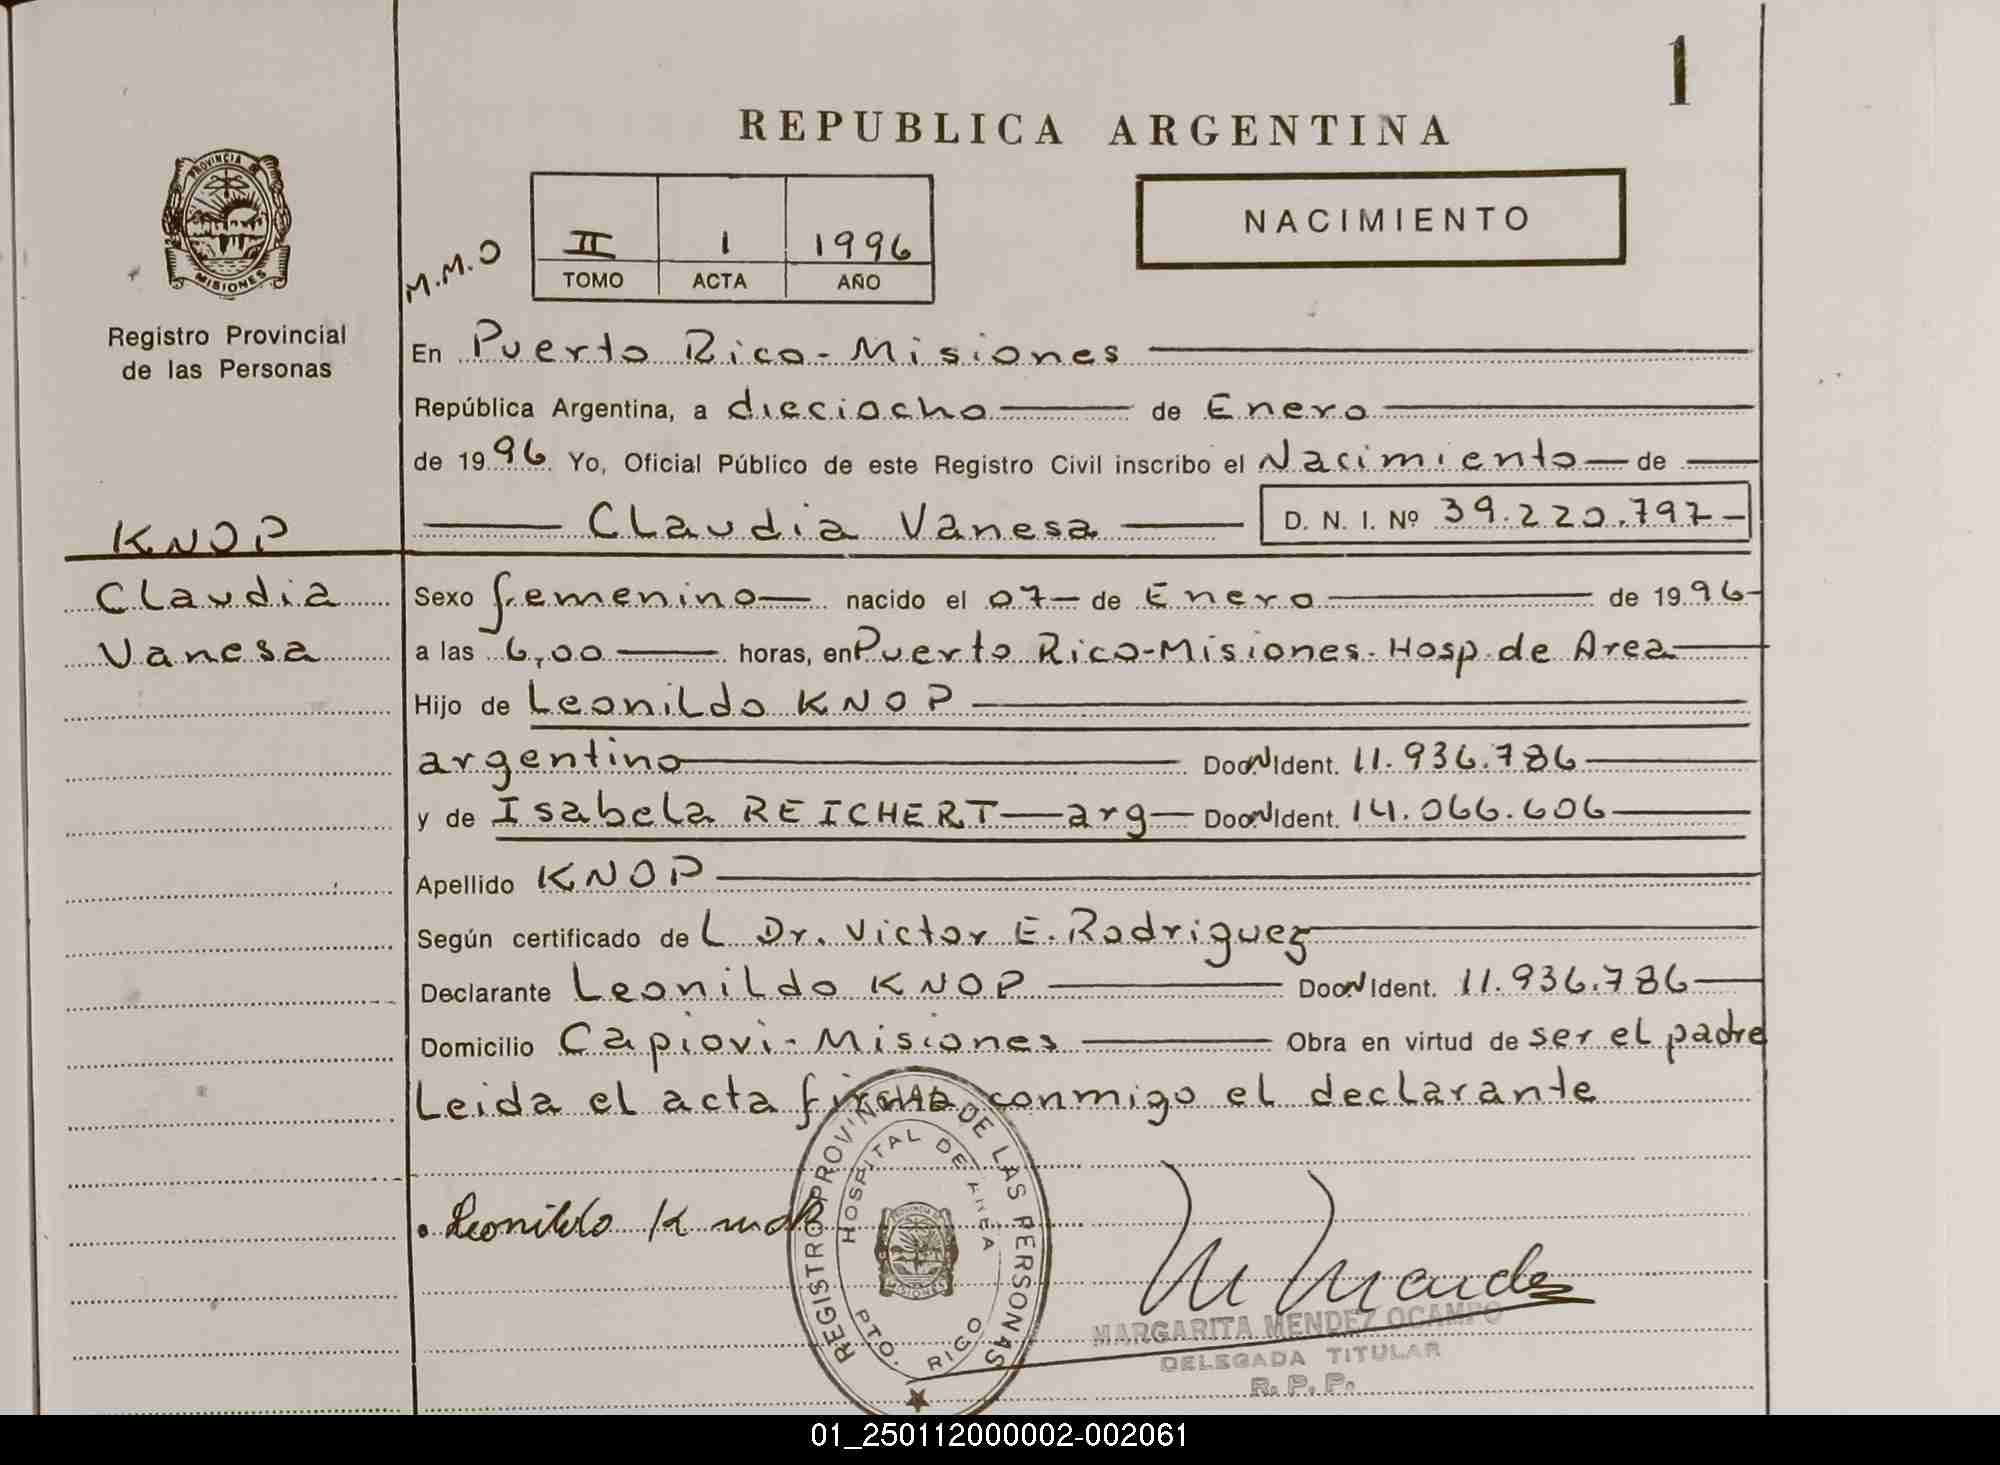 1
REPUBLICA ARGENTINA
PROVINCIA DE
MISIONES
Registro Provincial
de las Personas
M.M.O
II 1 1996
TOMO ACTA AÑO
NACIMIENTO
En Puerto Rico - Misiones
República Argentina, a dieciocho de Enero
de 1996 Yo, Oficial Público de este Registro Civil inscribo el Nacimiento de
Claudia Vanesa D. N. I. Nº 39.220.797-
KNOP
Claudia
Vanesa
Sexo femenino nacido el 07 de Enero de 1996
a las 6,00 horas, en Puerto Rico-Misiones. Hosp. de Area
Hijo de Leonildo KNOP
argentino Doc.N Ident. 11.936.786
y de Isabela REICHERT arg Doc.N Ident. 14.066.606
Apellido KNOP
Según certificado de L Dr. Victor E. Rodriguez
Declarante Leonildo KNOP Doc.N Ident. 11.936.786
Domicilio Capiovi - Misiones Obra en virtud de ser el padre
Leida el acta firma conmigo el declarante
REGISTRO PROVINCIAL DE LAS PERSONAS
HOSPITAL DE AREA
PTO. RICO
MISIONES
Leonildo Knop
M Mendez
MARGARITA MENDEZ OCAMPO
DELEGADA TITULAR
R. P. P.
01_250112000002-002061